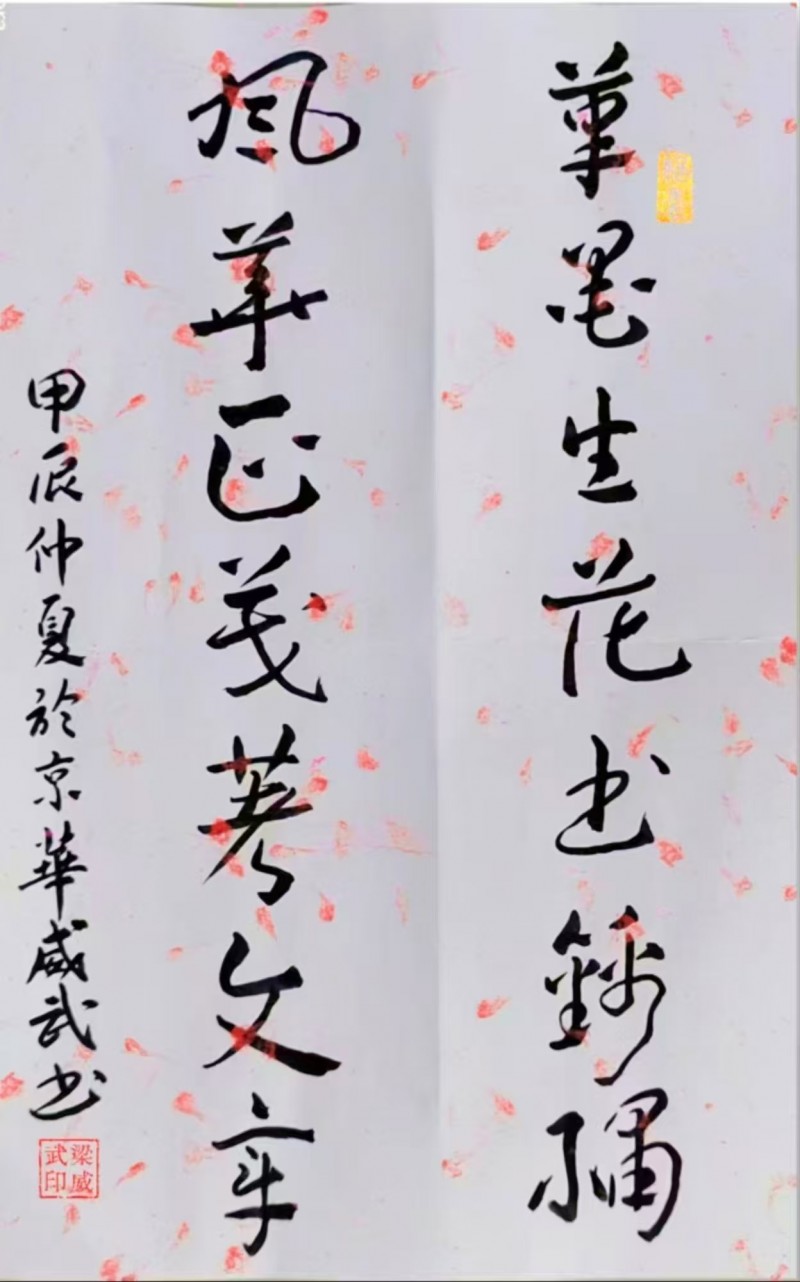 筆墨生花书錦繡
風華正茂著文章
甲辰仲夏於京華威武书
梁威武印